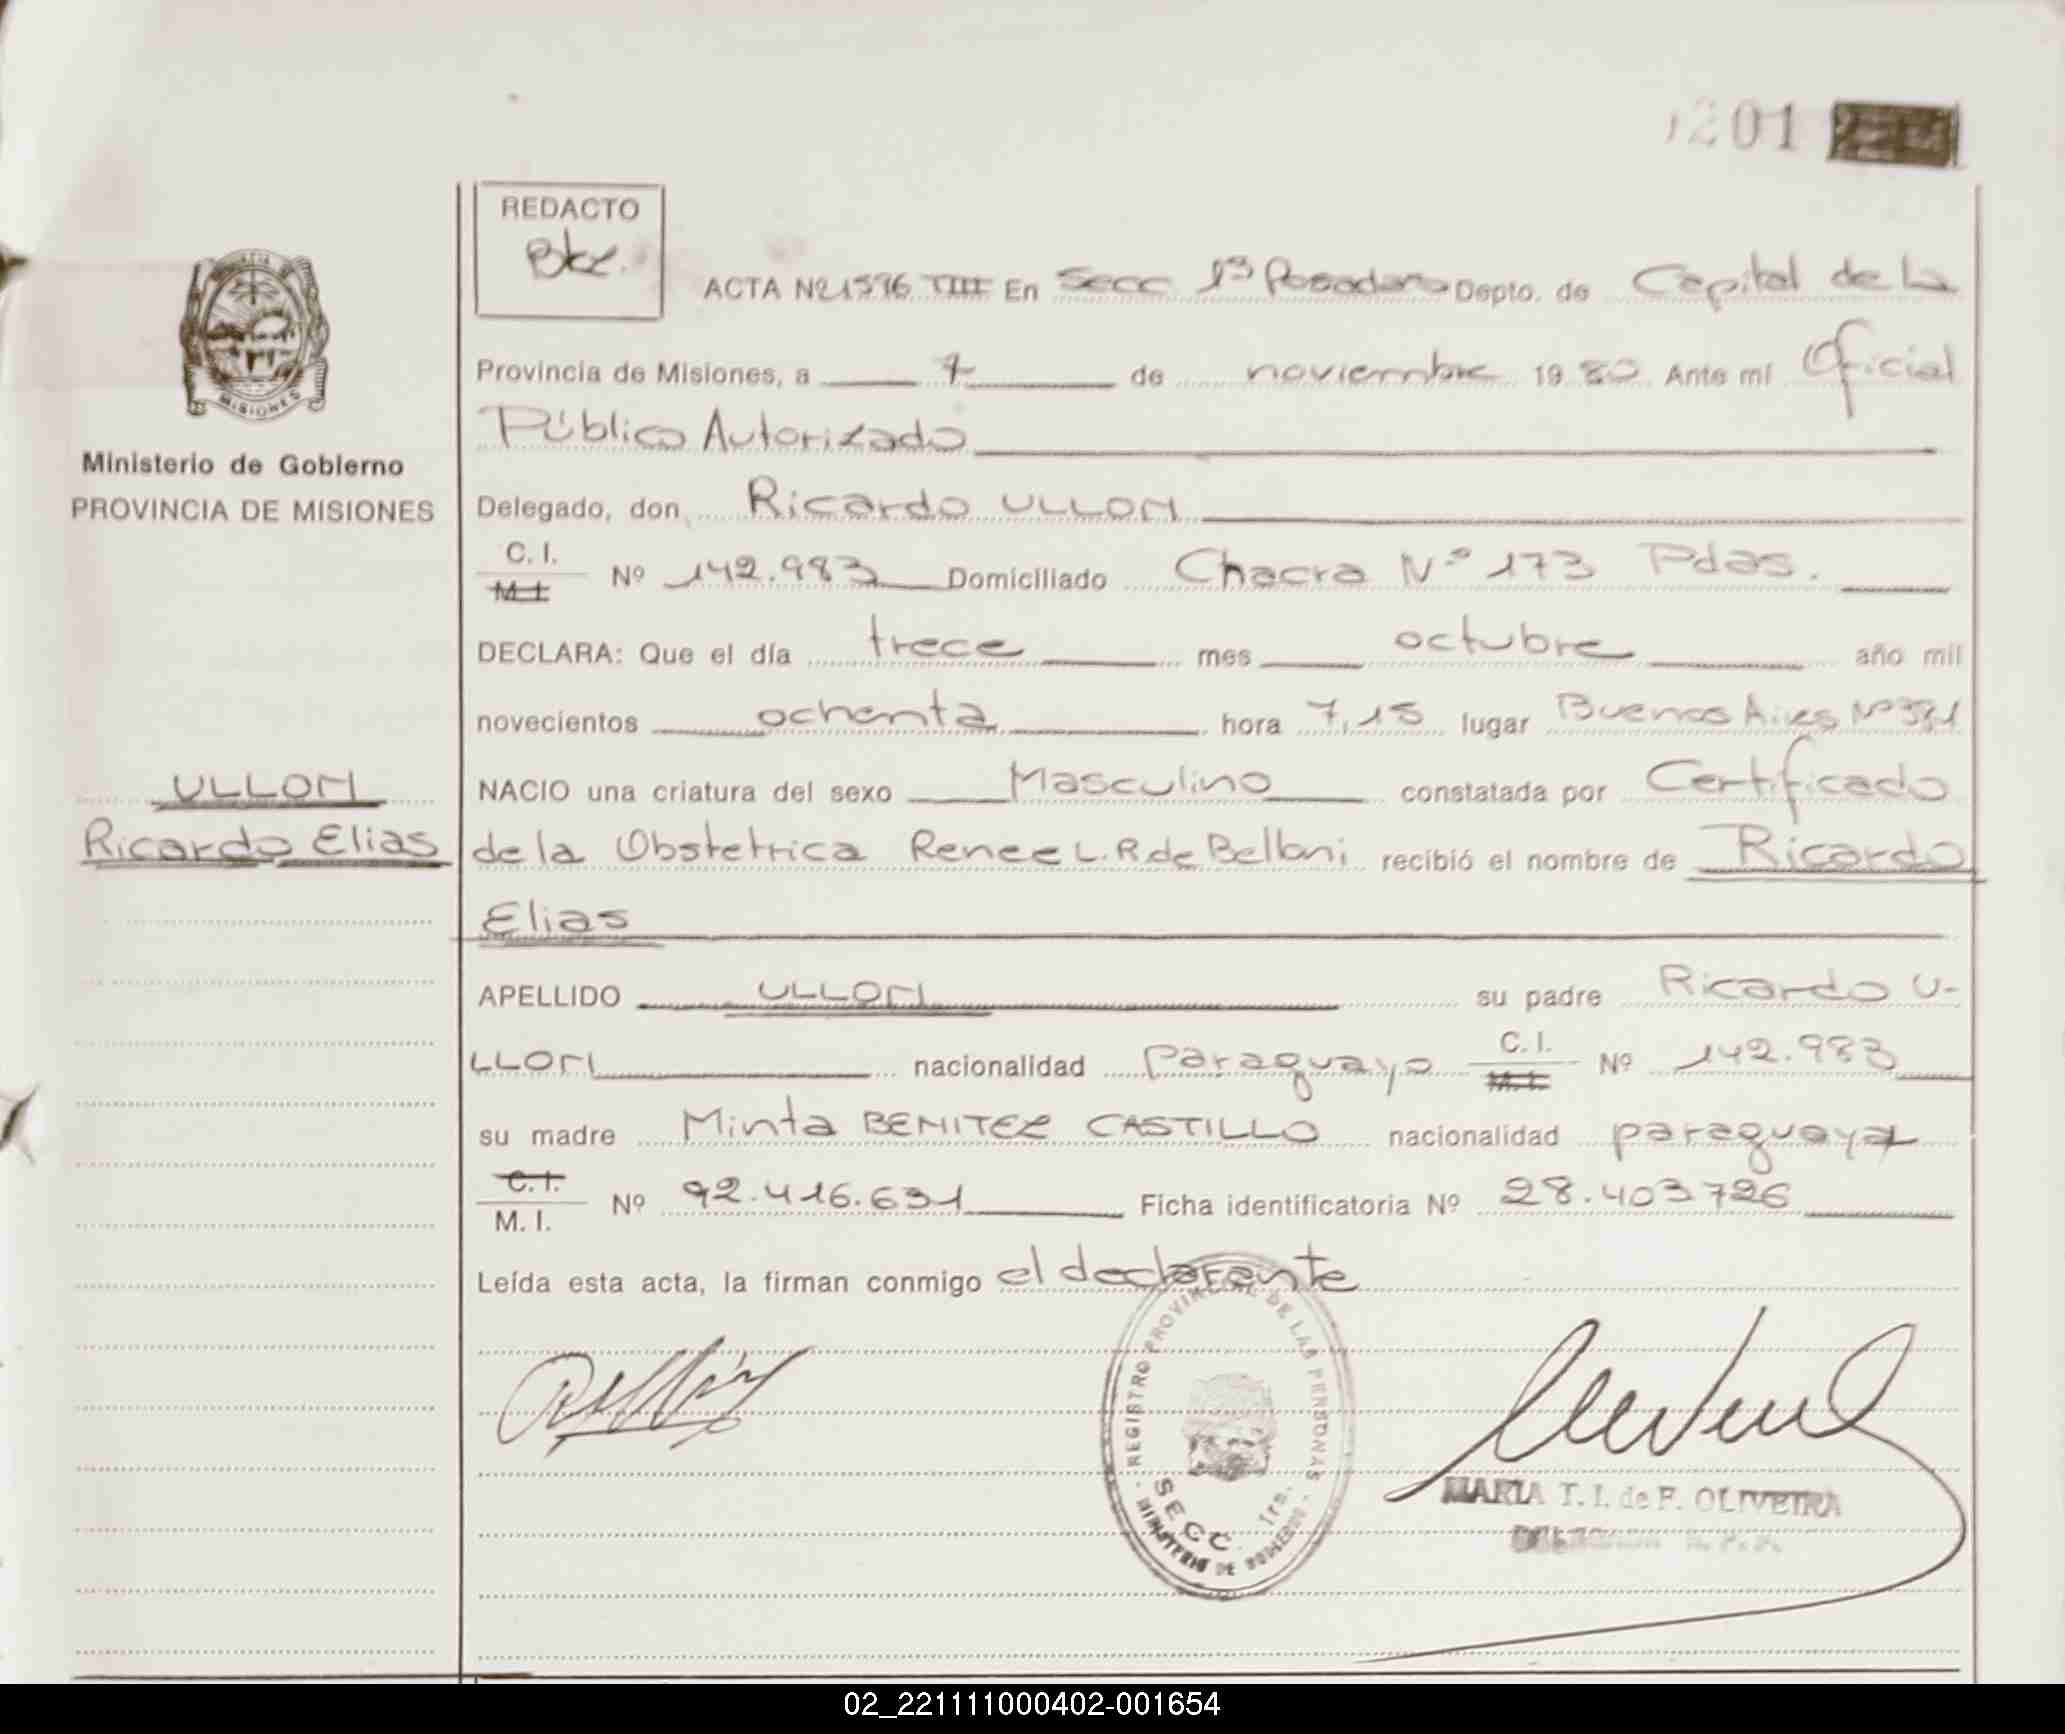 1201
REDACTO
ACTA Nº 1596 TIII En Secc 1ª Posadas Depto. de Capital de la
Provincia de Misiones, a 7 de noviembre 1980 Ante mí Oficial
Público Autorizado
MISIONES
Ministerio de Gobierno
PROVINCIA DE MISIONES
Delegado, don Ricardo ULLORI
C. I.
M. I. Nº 142.983 Domiciliado Chacra Nº 173 Pdas.
DECLARA: Que el día trece mes octubre año mil
novecientos ochenta hora 7,15 lugar Buenos Aires Nº
ULLORI
Ricardo Elias
NACIO una criatura del sexo Masculino constatada por Certificado
de la Obstetrica Renee L. R. de Belloni recibió el nombre de Ricardo
Elias
APELLIDO ULLORI su padre Ricardo U-
LLORI nacionalidad paraguayo C. I. M. I. Nº 142.983
su madre Minta BENITEZ CASTILLO nacionalidad paraguaya
C. I.
M. I. Nº 92.416.631 Ficha identificatoria Nº 28.403726
Leída esta acta, la firman conmigo el declarante
REGISTRO PROVINCIAL DE LAS PERSONAS
SECC. 1ra.
MINISTERIO DE GOBIERNO
MARIA T. I. de F. OLIVEIRA
02_221111000402-001654